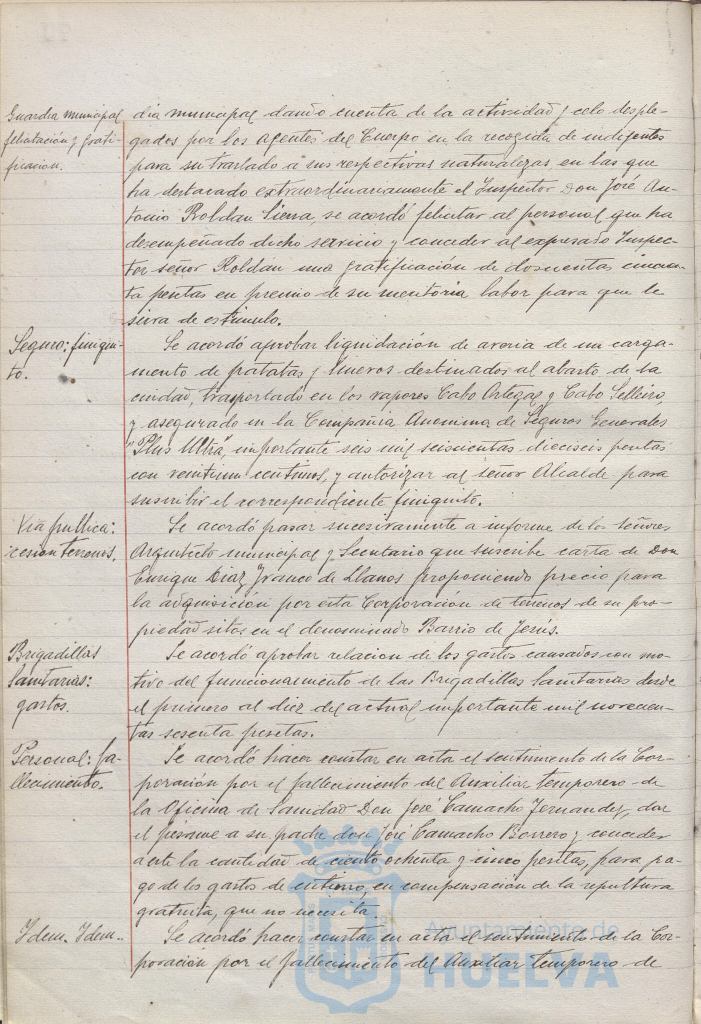 Guardia municipal
felicitación y grati-
ficacion.
dia municipal dando cuenta de la actividad y celo desple-
gados por los agentes del Cuerpo en la recogida de indigentes
para su traslado a sus respectivas naturalezas en las que
ha destacado extraordinariamente el Inspector Don José An-
tonio Roldan Sierra, se acordó felicitar al personal que ha
desempeñado dicho servicio y conceder al expresado Inspec-
tor señor Roldán una gratificación de doscientas cincuen-
ta pesetas en premio de su meritoria labor para que le
sirva de estimulo.
Seguro: finiqui-
to.
Se acordó aprobar liquidación de averia de un carga-
mento de patatas y huevos destinados al abasto de la
ciudad, trasportado en los vapores Cabo Ortegal y Cabo Silleiro
y asegurado en la Compañia Anonima de Seguros Generales
"Plus Ultra", importante seis mil seiscientas dieciseis pesetas
con veintiun centimos, y autorizar al señor Alcalde para
suscribir el correspondiente finiquito.
Via publica:
cesion terrenos.
Se acordó pasar sucesivamente a informe de los señores
Arquitecto municipal y Secretario que suscribe carta de Don
Enrique Diaz Franco de Llanos proponiendo precio para
la adquisición por esta Corporación de terrenos de su pro-
piedad sitos en el denominado Barrio de Jesús.
Brigadillas
Sanitarias:
gastos.
Se acordó aprobar relacion de los gastos causados con mo-
tivo del funcionamiento de las Brigadillas Sanitarias desde
el primero al diez del actual importante mil novecien-
tas sesenta pesetas.
Personal: fa-
llecimiento.
Se acordó hacer constar en acta el sentimiento de la Cor-
poración por el fallecimiento del Auxiliar temporero de
la Oficina de Sanidad Don José Camacho Fernandez, dar
el pesame a su padre don José Camacho Borrero y conceder
a este la cantidad de ciento ochenta y cinco pesetas, para pa-
go de los gastos de entierro, en compensación de la sepultura
gratuita, que no necesita.
Idem. Idem.-
Se acordó hacer constar en acta el sentimiento de la Cor-
poración por el fallecimiento del Auxiliar temporero de
Ayuntamiento de
HUELVA